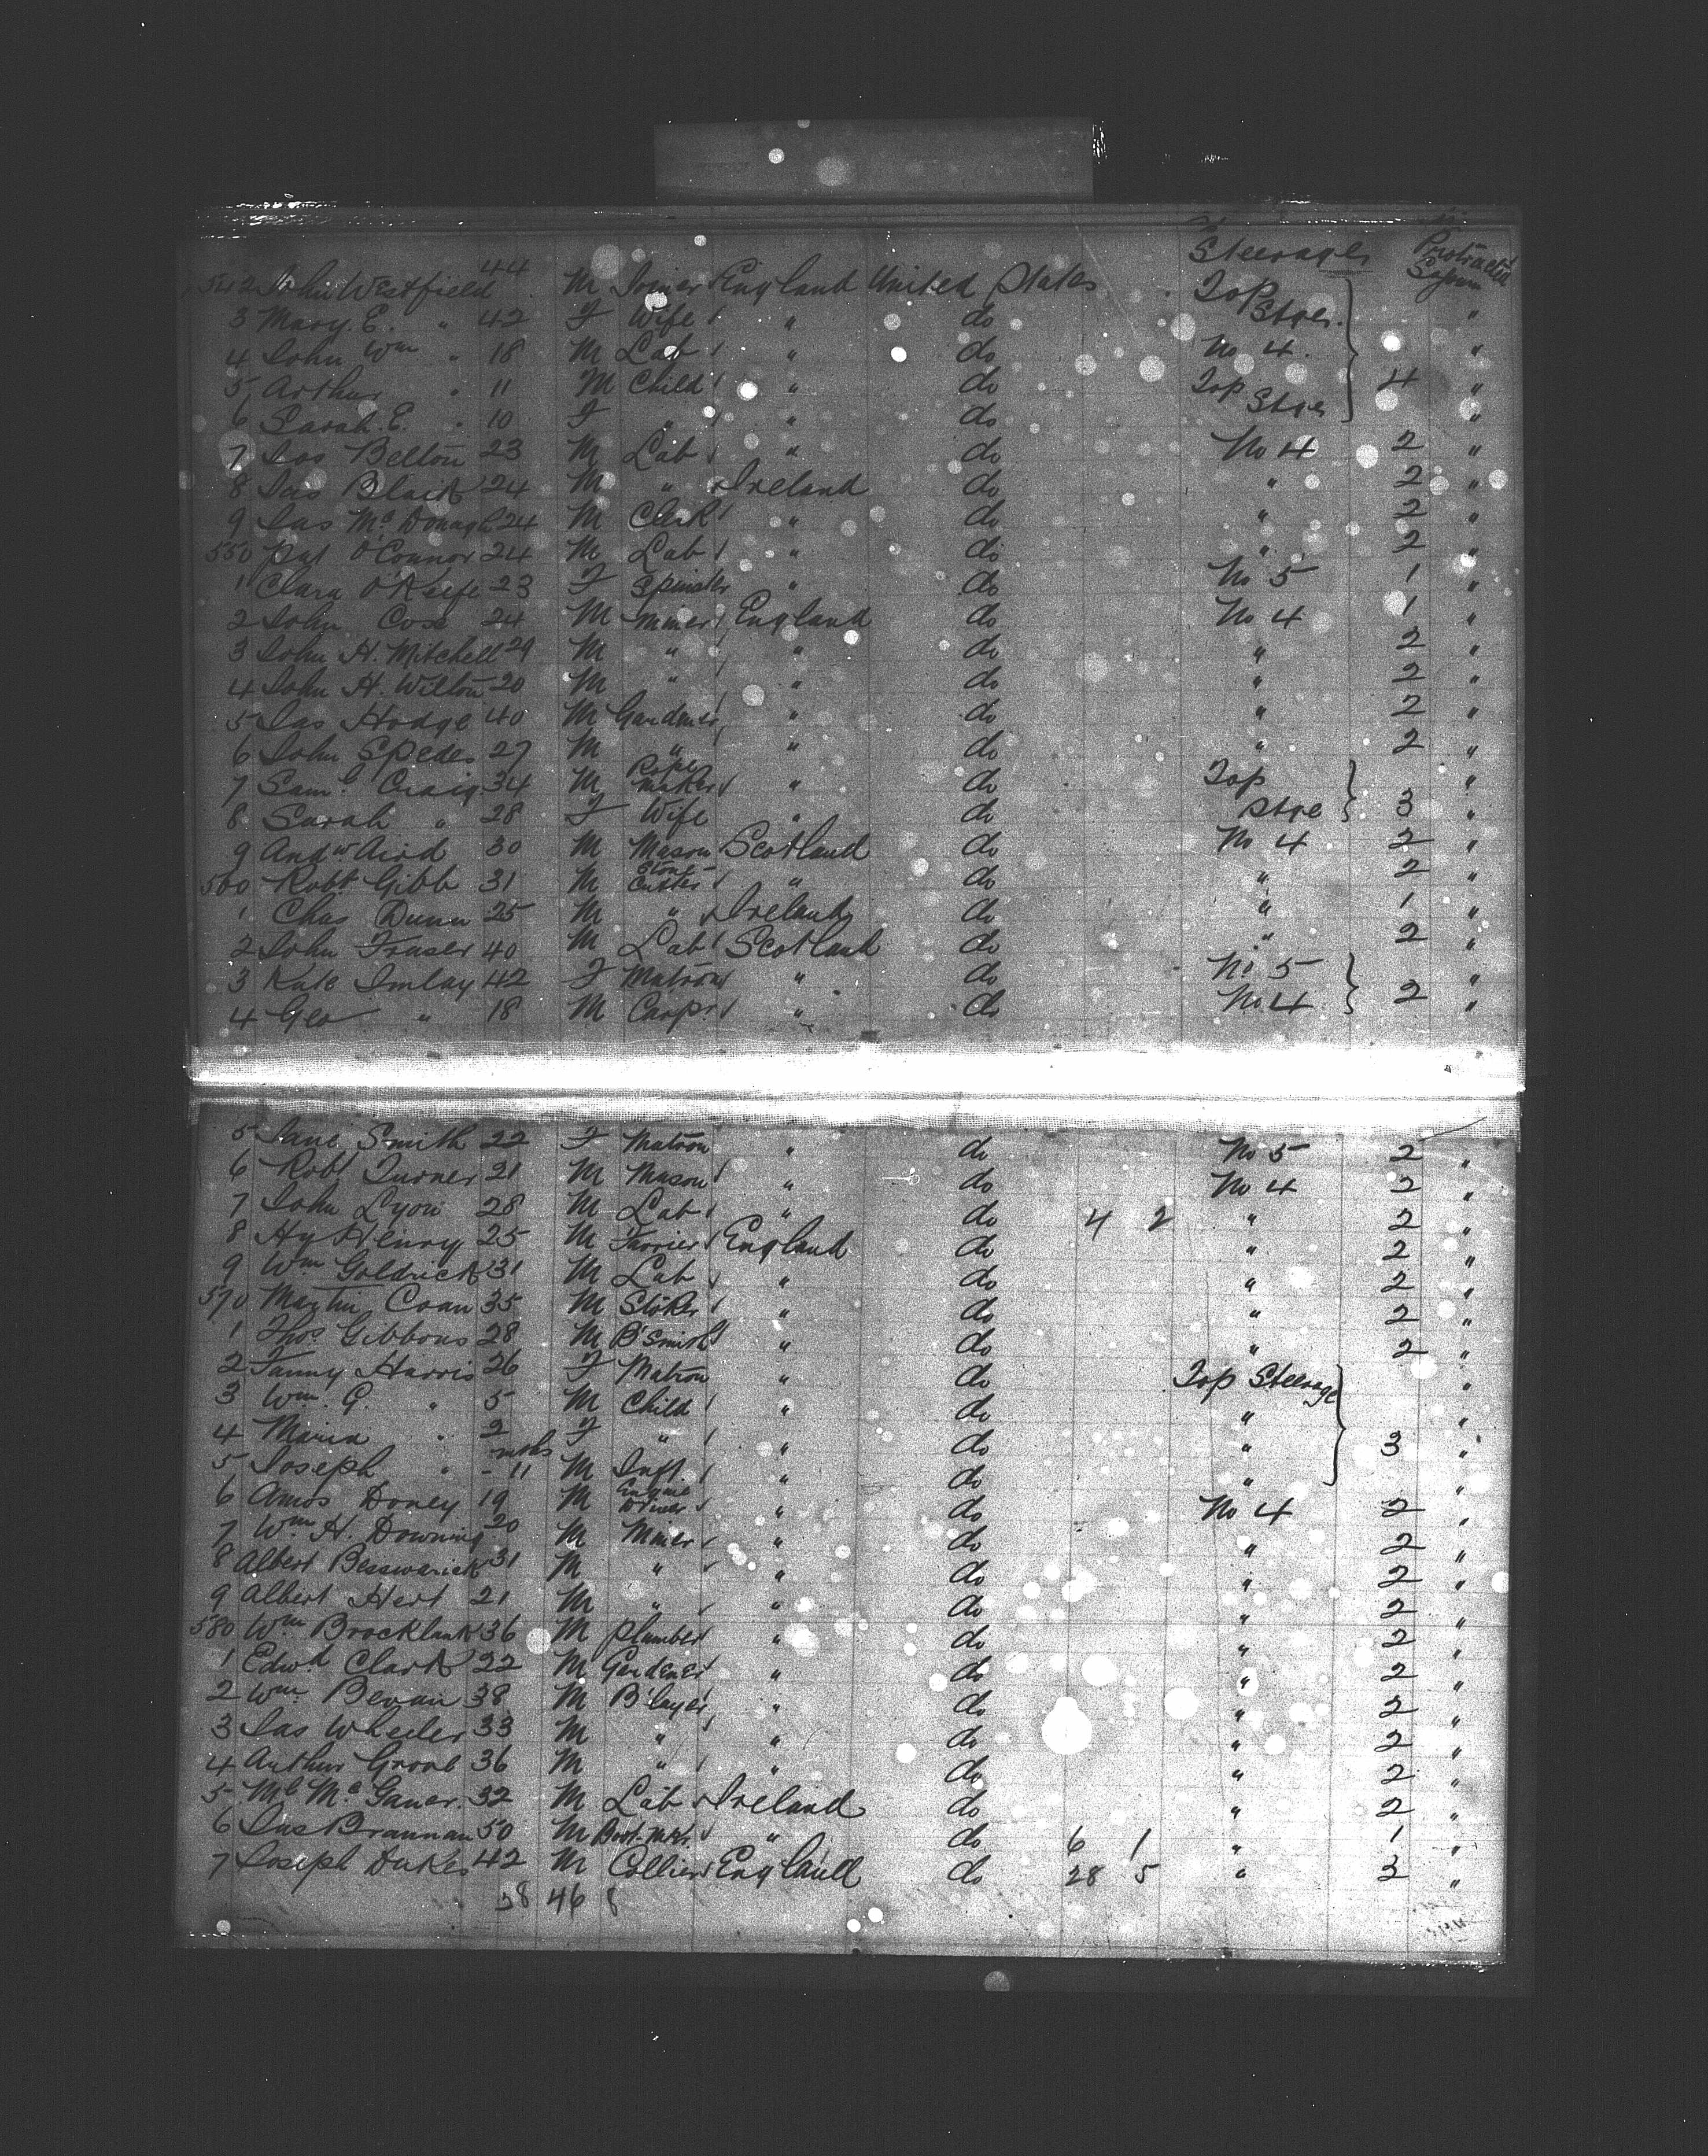 Steerage Protracted Sojourn
542 John Westfield 44 M Joiner England United States Top Stge.
3 Mary E. " 42 F Wife " do "
4 John Wm " 18 M Lab " do No 4. "
5 Arthur " 11 M Child " do Top Stge 4 "
6 Sarah E. " 10 F " " do "
7 Jas Belton 23 M Lab " do No 4 2 "
8 Jas Black 24 M " Ireland do " 2 "
9 Jas McDonagh 24 M Clerk " do " 2 "
550 Pat O'Connor 24 M Lab " do " 2 "
1 Clara O'Keefe 23 F Spinster " do No 5 1 "
2 John Cose 24 M Miner England do No 4 1 "
3 John H. Mitchell 29 M " " do " 2 "
4 John H. Wilton 20 M " " do " 2 "
5 Jas Hodge 40 M Gardener " do " 2 "
6 John Spedes 27 M " " do " 2 "
7 Saml Craig 34 M Rope maker " do Top "
8 Sarah " 28 F Wife " do Stge 3 "
9 Andw Aird 30 M Mason Scotland do No 4 2 "
560 Robt Gibb 31 M Stone Cutter " do " 2 "
1 Chas Dunn 25 M " Ireland do " 1 "
2 John Fraser 40 M Lab Scotland do " 2 "
3 Kate Imlay 42 F Matron " do No 5 "
4 Geo " 18 M Carp. " do No. 4 2 "
5 Jane Smith 22 F Matron " do No 5 2 "
6 Robt Turner 21 M Mason " do No 4 2 "
7 John Lyon 28 M Lab " do 4 2 " 2 "
8 Hy Henry 25 M Farrier England do " 2 "
9 Wm Goldrick 31 M Lab " do " 2 "
570 Martin Coan 35 M Stoker " do " 2 "
1 Thos Gibbons 28 M B'Smith " do " 2 "
2 Fanny Harris 26 F Matron " do Top Steerage "
3 Wm. G. " 5 M Child " do " "
4 Maria " 2 F " " do " 3 "
5 Joseph " mths 11 M Inft. " do " "
6 Amos Doney 19 M Engine Driver " do No 4 2 "
7 Wm H. Downing 20 M Miner " do " 2 "
8 Albert Besswarick 31 M " " do " 2 "
9 Albert Hert 21 M " " do " 2 "
580 Wm Brocklank 36 M Plumber " do " 2 "
1 Edwd Clark 22 M Gardener " do " 2 "
2 Wm Bevan 38 M B'layer " do " 2 "
3 Jas Wheeler 33 M " " do " 2 "
4 Arthur Grove 36 M " " do " 2 "
5 Ml McGaner. 32 M Lab Ireland do " 2 "
6 Jas Brannan 50 M Boot-Mkr " do 6 1 " 1 "
7 Joseph Dukes 42 M Collier England do 28 5 " 3 "
38 46 8